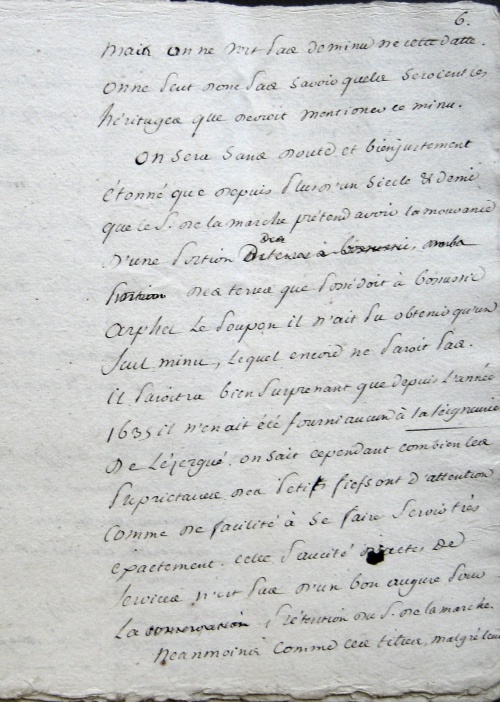 6.
mais on ne voit pas de minu de cette datte.
on ne peut donc pas savoir quels seroient les
héritages que devroit mentioner ce minu.
On sera sans doute et bien justement
étonné que depuis plus d'un siecle & demi
que le S. de la marche prétend avoir la mouvance
d'une portion des terres à
portion des terres que possédoit à
le poupon il n'ait pu obtenir qu'un
seul minu, lequel encore ne paroit pas.
il paroitra bien surprenant que depuis l'année
1635 il n'en ait été fourni aucun à la seigneurie
de Lézergué. on sait cependant combien les
propriétaires des petits fiefs ont d'attention
comme de facilité à se faire servir très
exactement. cette paucité d'actes de
services n'est pas d'un bon augure pour
la prétention du S. de la marche.
Neanmoins comme ces titres, malgré leur